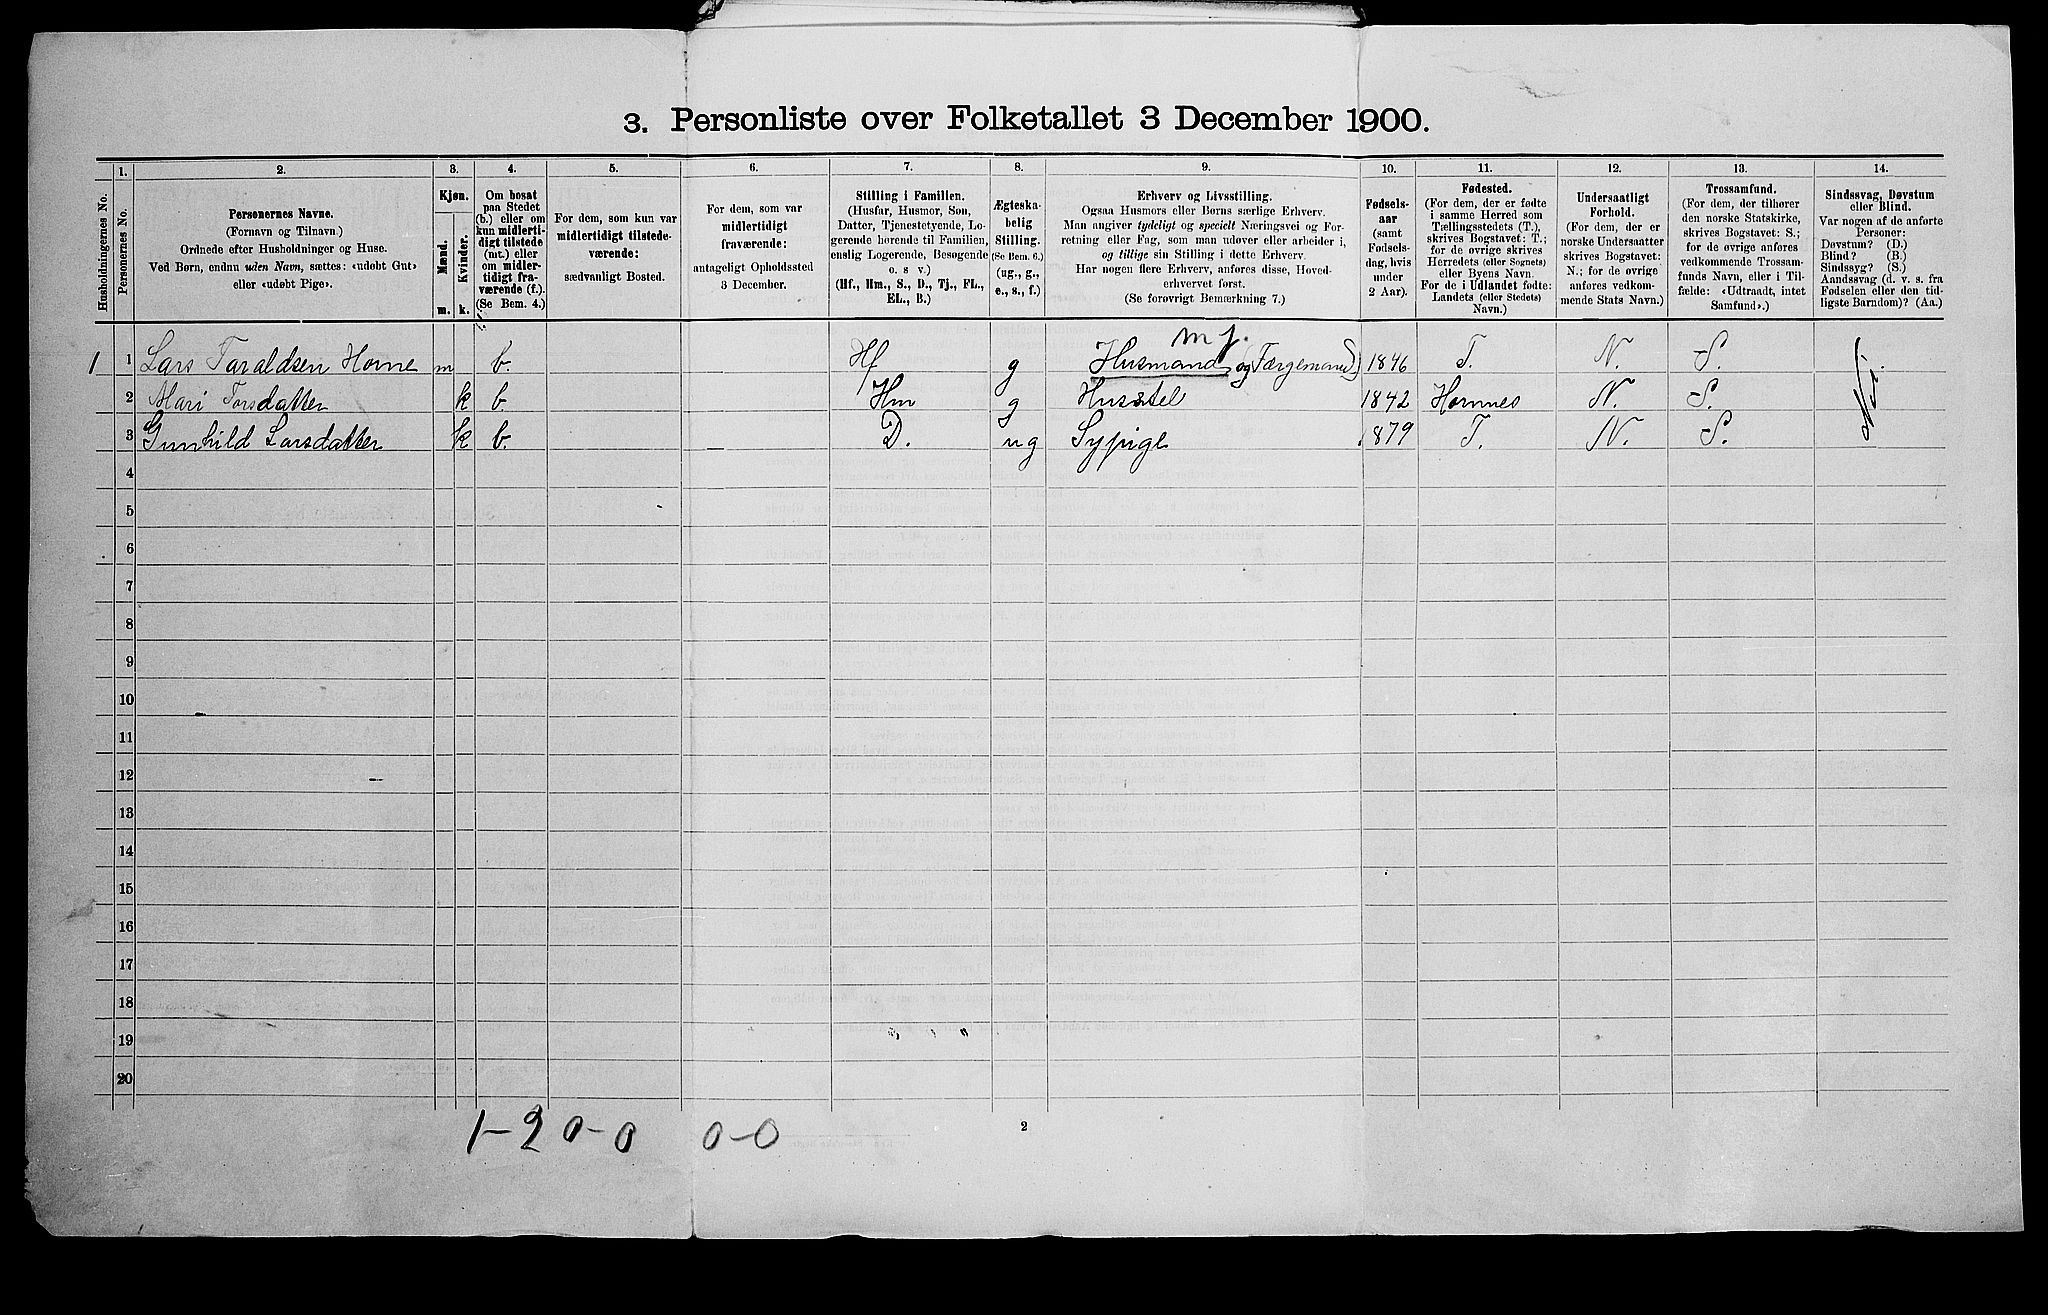 3. Personliste over Folketallet 3 December 1900.
Husholdningernes No.
1.
Personernes No.
2.
Personernes Navne.
(Fornavn og Tilnavn.)
Ordnede efter Husholdninger og Huse.
Ved Børn, endnu uden Navn, sættes: «udøbt Gut»
eller «udøbt Pige».
3.
Kjøn.
Mænd.
Kvinder.
m. k.
4.
Om bosat
paa Stedet
(b.) eller om
kun midlerti-
digt tilstede
(mt.) eller
om midler-
tidigt fra-
værende (f.).
(Se Bem. 4.)
5.
For dem, som kun var
midlertidigt tilstede-
værende:
sædvanligt Bosted.
6.
For dem, som var
midlertidigt
fraværende:
antageligt Opholdssted
3 December.
7.
Stilling i Familien.
(Husfar, Husmor, Søn,
Datter, Tjenestetyende, Lo-
gerende hørende til Familien,
enslig Logerende, Besøgende
o. s v.)
(Hf., Hm., S., D., Tj., FL.,
EL., B.)
8.
Ægteska-
belig
Stilling.
(Se Bem. 6.)
(ug., g.,
e., s., f.)
9.
Erhverv og Livsstilling.
Ogsaa Husmors eller Børns særlige Erhverv.
Man angiver tydeligt og specielt Næringsvei og For-
retning eller Fag, som man udøver eller arbeider i,
og tillige sin Stilling i dette Erhverv.
Har nogen flere Erhverv, anføres disse, Hoved-
erhvervet først.
(Se forøvrigt Bemærkning 7.)
10.
Fødsels-
aar
(samt
Fødsels-
dag, hvis
under
2 Aar).
11.
Fødested.
(For dem, der er fødte
i samme Herred som
Tællingsstedets (T.),
skrives Bogstavet: T.;
for de øvrige skrives
Herredets (eller Sognets)
eller Byens Navn.
For de i Udlandet fødte:
Landets (eller Stedets)
Navn.)
12.
Undersaatligt
Forhold.
(For dem, der er
norske Undersaatter
skrives Bogstavet:
N.; for de øvrige
anføres vedkom-
mende Stats Navn.)
13.
Trossamfund.
(For dem, der tilhører
den norske Statskirke,
skrives Bogstavet: S.;
for de øvrige anføres
vedkommende Trossam-
funds Navn, eller i Til-
fælde: «Udtraadt, intet
Samfund».)
14.
Sindssvag, Døvstum
eller Blind.
Var nogen af de anførte
Personer:
Døvstum? (D.)
Blind? (B.)
Sindssyg? (S.)
Aandssvag (d. v. s. fra
Fødselen eller den tid-
ligste Barndom)? (Aa.)
m j.
1 1 Lars Taraldsen Horne m b. Hf g Husmand (og Færgemand) 1846 T. N. S.
2 Mari Torsdatter k b. Hm g Husstel 1842 Hornnes N. S.
3 Gunhild Larsdatter k b. D. ug Sypige 1879 T. N. S.
Nei.
4
5
6
7
8
9
10
11
12
13
14
15
16
17
18
19
20
1-2 0-0 0-0
2